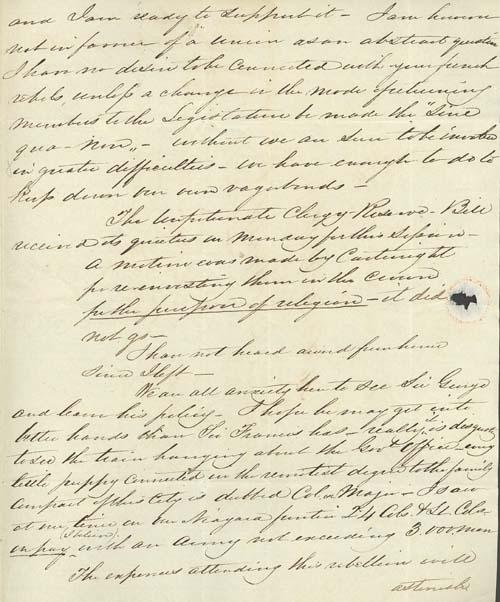 and I am ready to support it – I am however
not in favor of a union as an abstract question
I have no desire to be connected with your french
rebels, unless a change in the mode of returning
members to the Legislature be made the "Sine
qua-non" – without we are sure to be involved
in greater difficulties – we have enough to do to
keep down our own vagabonds –
The Unfortunate Clergy Reserve – Bill
received its quietus on Monday for this Session –
a motion was made by Cartwright
for re-investing them in the Crown
for the purposes of religion – it did
not go –
I have not heard a word from home
since I left –
We are all anxiety here to see Sir George
and learn his policy – I hope he may get into
better hands than Sir Francis has – really, is disgusting
to see the train hanging about the Govt Office – every
little puppy connected in the remotest degree to the family
compact of this City is dubbed Col. or Major – I saw
at one time on our Niagara frontier 24 Cols & Lt. Cols.
on pay with an Army not exceeding 3,000 men
The expenses attending this rebellion will
astonish